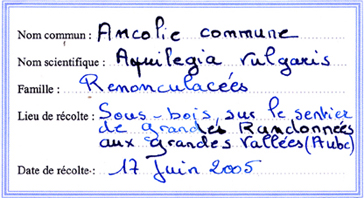 Nom commun : Ancolie commune
Nom scientifique : Aquilegia vulgaris
Famille : Renonculacées
Lieu de récolte : Sous-bois, sur le sentier
de Grandes Randonnées
aux Grandes Vallées (Aube)
Date de récolte : 17 Juin 2005